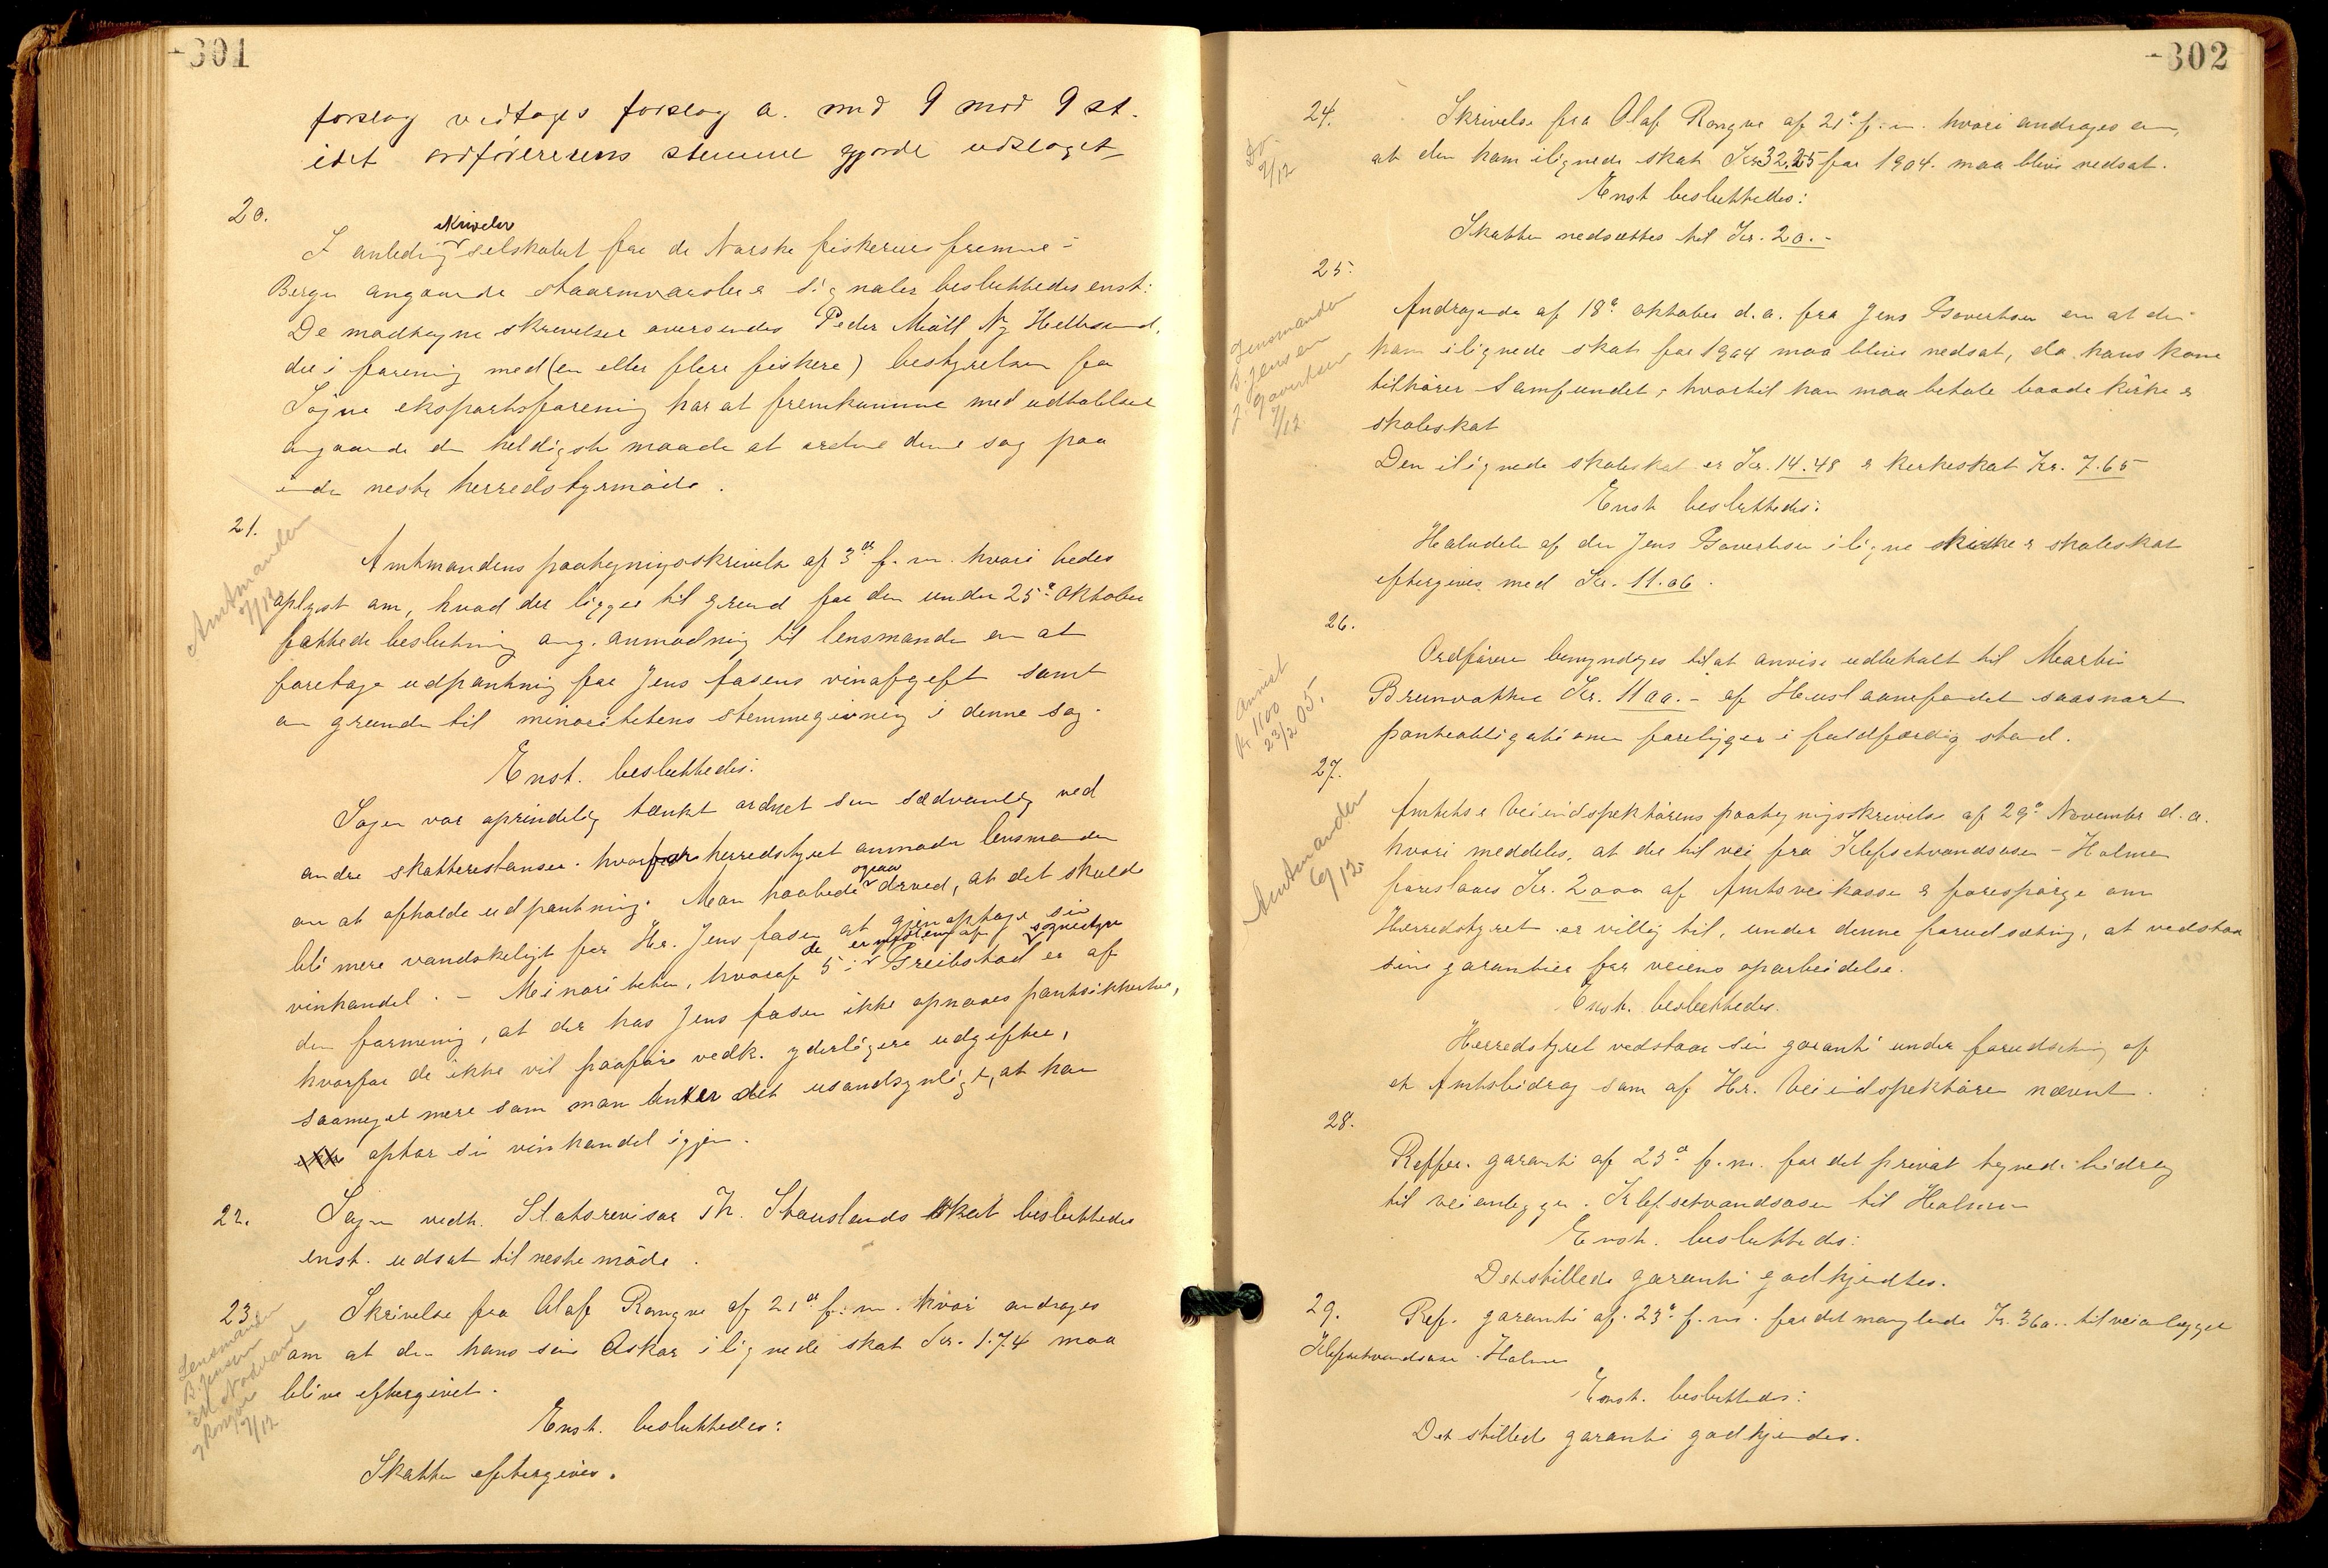 301
forslag vedtoges forslag a. med 9 mod 9 st.
idet ordførerens stemme gjorde udslaget
20.
skrivelse
I anledning selskabet for de Norske fiskeriers fremme i
Bergen angaaende staarmvarslere signaler besluttedes enst:
De modtagne skrivelser oversendes Peder Ny Hellesund,
der i forening med (en eller flere fiskere) bestyrelsen for
Søgne eksportforening har at fremkomme med udtalelser
angaaende den heldigste maade at ordne denne sag paa
inden neste herredstyrmøde.
21.
Amtmanden 9/12
Amtmandens paategningsskrivelse af 3die f. m. hvori bedes
oplyst om, hvad der ligger til grund for den under 25de Oktober
fattede beslutning ang. anmodning til lensmanden om at
foretage udpantning for Jens Fasens vinafgift samt
om grunden til minoritetens stemmegivning i denne sag.
Enst. besluttedes:
Sagen var oprindelig tænkt ordnet som sædvanlig ved
andre skatterestanser. hvorfor herredstyret anmoder lensmanden
ogsaa
om at afholde udpantning. Man haabede derved, at det skulde
bli mere vandskeligt for Hr. Jens Fasen at gjenoptage sin
de er medlem af sognestyre
vinhandel. - Minoriteten, hvoraf 5 i Greibstad er af
den formening, at der hos Jens Fasen ikke opnaaes pantsikkerhed,
hvorfor de ikke vil paaføre vedk. yderligere udgifter,
saameget mere som man anser det usandsynligt, at han
ikke optar sin vinhandel igjen.
22.
Sagen vedk. Statsrevisor Th. Stauslands skat besluttedes
enst. udsat til neste møde.
23.
Lensmanden
B. Jensen
O Rongve
9/12
Skrivelse fra Olaf Rongve af 21de f. m. hvori andrages
om at den hans søn Oskar ilignede skat Kr. 1.74 maa
blive eftergivet.
Enst. besluttedes:
Skatten eftergives.
302
24.
Do
9/12
Skrivelse fra Olaf Rongve af 21de f. m. hvori andrages om,
at den ham ilignede skat Kr 32.25 for 1904. maa blive nedsat.
Enst besluttedes:
Skatten nedsættes til Kr. 20.-
25.
Lensmanden
B. Jensen
J. Govertsen
9/12
Andragende af 18de oktober d. a. fra Jens Govertsen om at den
ham ilignede skat for 1904 maa blive nedsat, da hans kone
tilhører Samfundet, hvortil han maa betale baade kirke &
skoleskat
Den ilignede skoleskat er Kr. 14.48 & kirkeskat Kr. 7.65
Enst besluttedes:
Halvdelen af den Jens Govertsen iligne kirke & skoleskat
eftergives med Kr. 11.06.
26.
Anvist
Kr 1100
23/2 05.
Ordføreren bemyndiges til at anvise udbetalt til Martin
Brunvatne Kr. 1100.- af Huslaanefondet saasnart
panteobligationen foreligger i fuldfærdig stand.
27.
Amtmanden
9/12.
Amtets Veiindspektørens paategningsskrivelse af 29de November d. a.
hvori meddeles, at der til vei fra Klepsetvandsosen - Holmen
foreslaaes Kr. 2000 af Amtsveikassen & forespørge om
Herredstyret er villig til, under denne forudsætning, at vedstaa
sine garantier for veiens oparbeidelse.
Enst. besluttedes.
Herredstyret vedstaar sin garanti under forudsætning af
et Amtsbidrag som af Hr. Veiindspektøren nævnt.
28.
Reffer. garanti af 23de f. m. for det privat tegnede bidrag
til veianlegget. Klepsetvandsosen til Holmen
Enst. besluttedes:
Det stillede garanti godkjendtes.
29.
Ref. garanti af 23de f. m. for det manglende Kr. 360.. til veianlegget
Klepsetvandsosen - Holmen
Enst. besluttedes:
Det stillede garanti godkjendes.